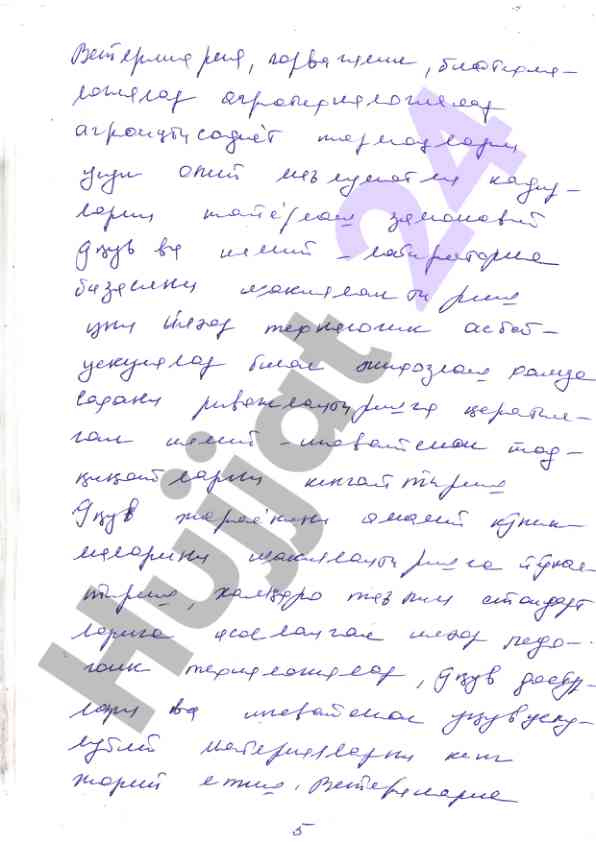 5
Ветеринария, чорвачилик, биотехно-
логиялар агротехнологиялар
агроиқтисодиёт тармоқлари
учун олий маълумотли кадр-
ларни тайёрлаш замонавий
ўқув ва илмий - лаборатория
базасини шакллантириш
уни илғор технологик асбоб-
ускуналар билан жиҳозлаш ҳамда
соҳани ривожлантиришга қаратил-
ган илмий - инновацион тад-
қиқотларни кенгайтириш
Ўқув жараёнини амалий кўник-
маларини шакллантиришга йўнал-
тириш, халқаро таълим стандарт
ларига асосланган илғор педа-
гогик технологиялар, ўқув дастур-
лари ва инновацион ўқув услу-
убий материалларни кенг
жорий этиш. Ветеринария
5
Hujjat 24